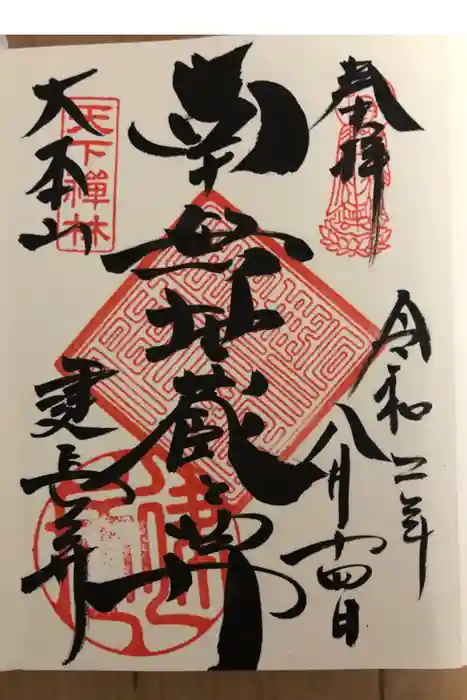 奉拝
令和二年
八月十四日
南無地蔵尊
大本山
天下禅林
建長寺